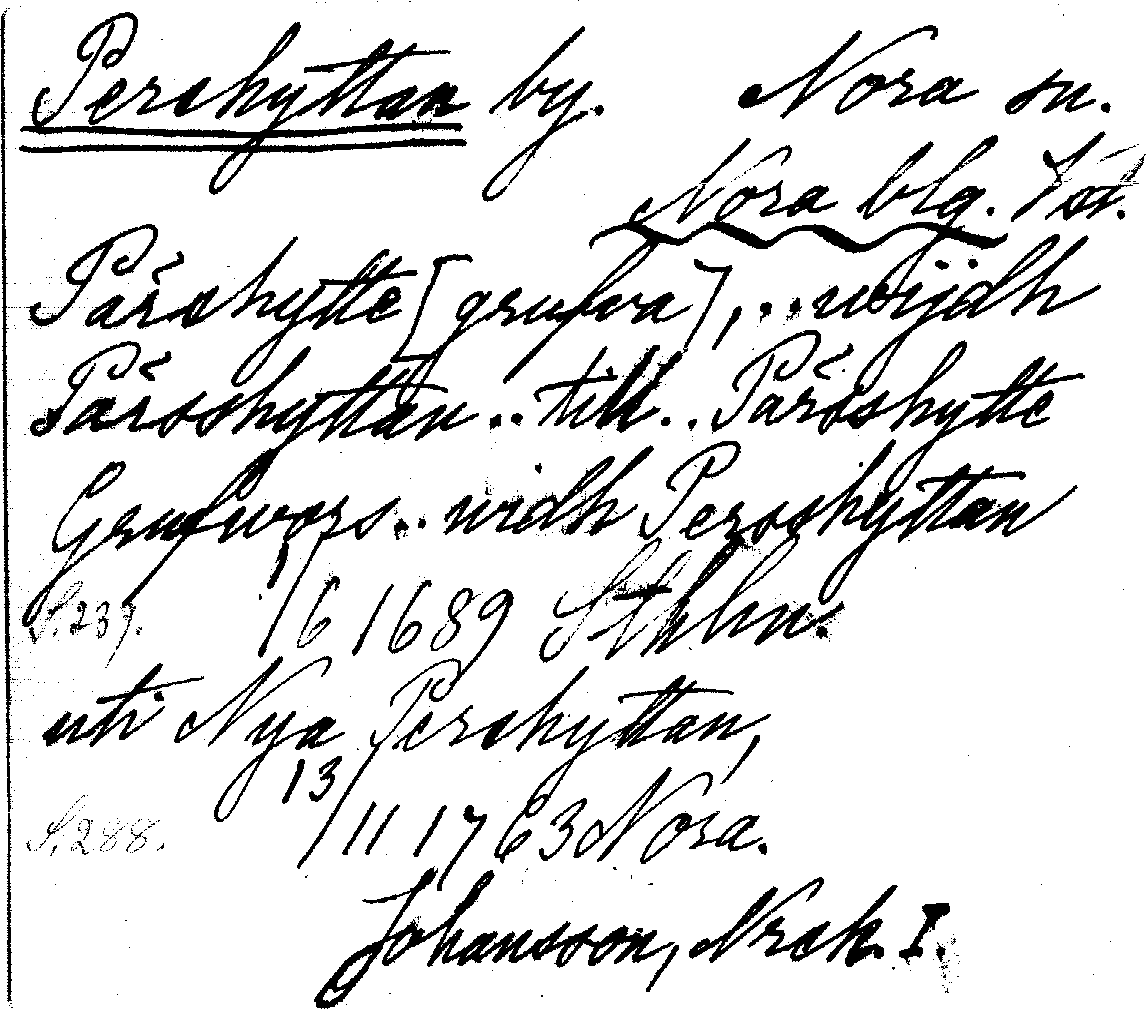 Pershyttan by. Nora sn.
Nora blg. Väst.
Pärshytte [grufva], .. widh
Pärsshyttan .. till .. Pärsshytte
Grufwors .. widh Persshyttan
S. 239. 1/6 1689 Sthlm.
uti Nya Pershyttan,
S. 288. 13/11 1763 Nora.
Johansson, Nrck. I.